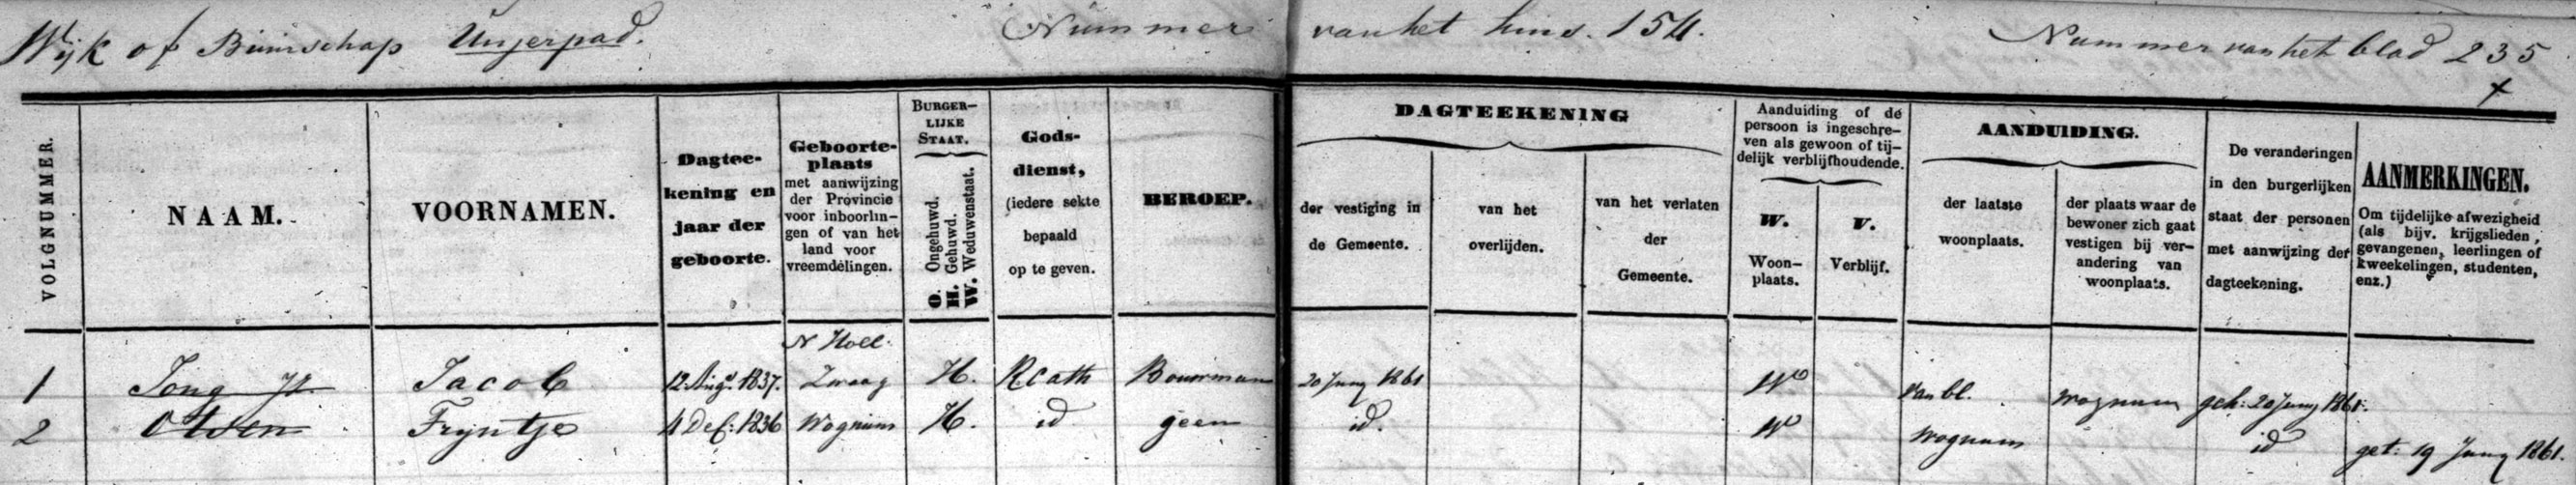 Wijk of Buurschap Unjerpad. Nummer van het huis. 154. Nummer van het blad 235
VOLGNUMMER.
NAAM.
VOORNAMEN.
Dagtee-
kening en
jaar der
geboorte.
Geboorte-
plaats
met aanwijzing
der Provincie
voor inboorlin-
gen of van het
land voor
vreemdelingen.
BURGER-
LIJKE
STAAT.
O. Ongehuwd.
H. Gehuwd.
W. Weduwenstaat.
Gods-
dienst,
(iedere sekte
bepaald
op te geven.
BEROEP.
DAGTEEKENING
der vestiging in
de Gemeente.
van het
overlijden.
van het verlaten
der
Gemeente.
Aanduiding of de
persoon is ingeschre-
ven als gewoon of tij-
delijk verblijfhoudende.
W.
Woon-
plaats.
V.
Verblijf.
AANDUIDING.
der laatste
woonplaats.
der plaats waar de
bewoner zich gaat
vestigen bij ver-
andering van
woonplaats.
De veranderingen
in den burgerlijken
staat der personen
met aanwijzing der
dagteekening.
AANMERKINGEN.
Om tijdelijke afwezigheid
(als bijv. krijgslieden,
gevangenen, leerlingen of
kweekelingen, studenten,
enz.)
N Holl.
1 Jong Jacob 12 Aug. 1837. Zwaag H. R Cath Bouwman 20 Juny 1861 W van bl. Wognum geh: 20 Juny 1861.
2 Olsen Tryntje 4 Dec: 1836 Wognum H. id geen id. W Wognum id get: 19 Juny 1861.